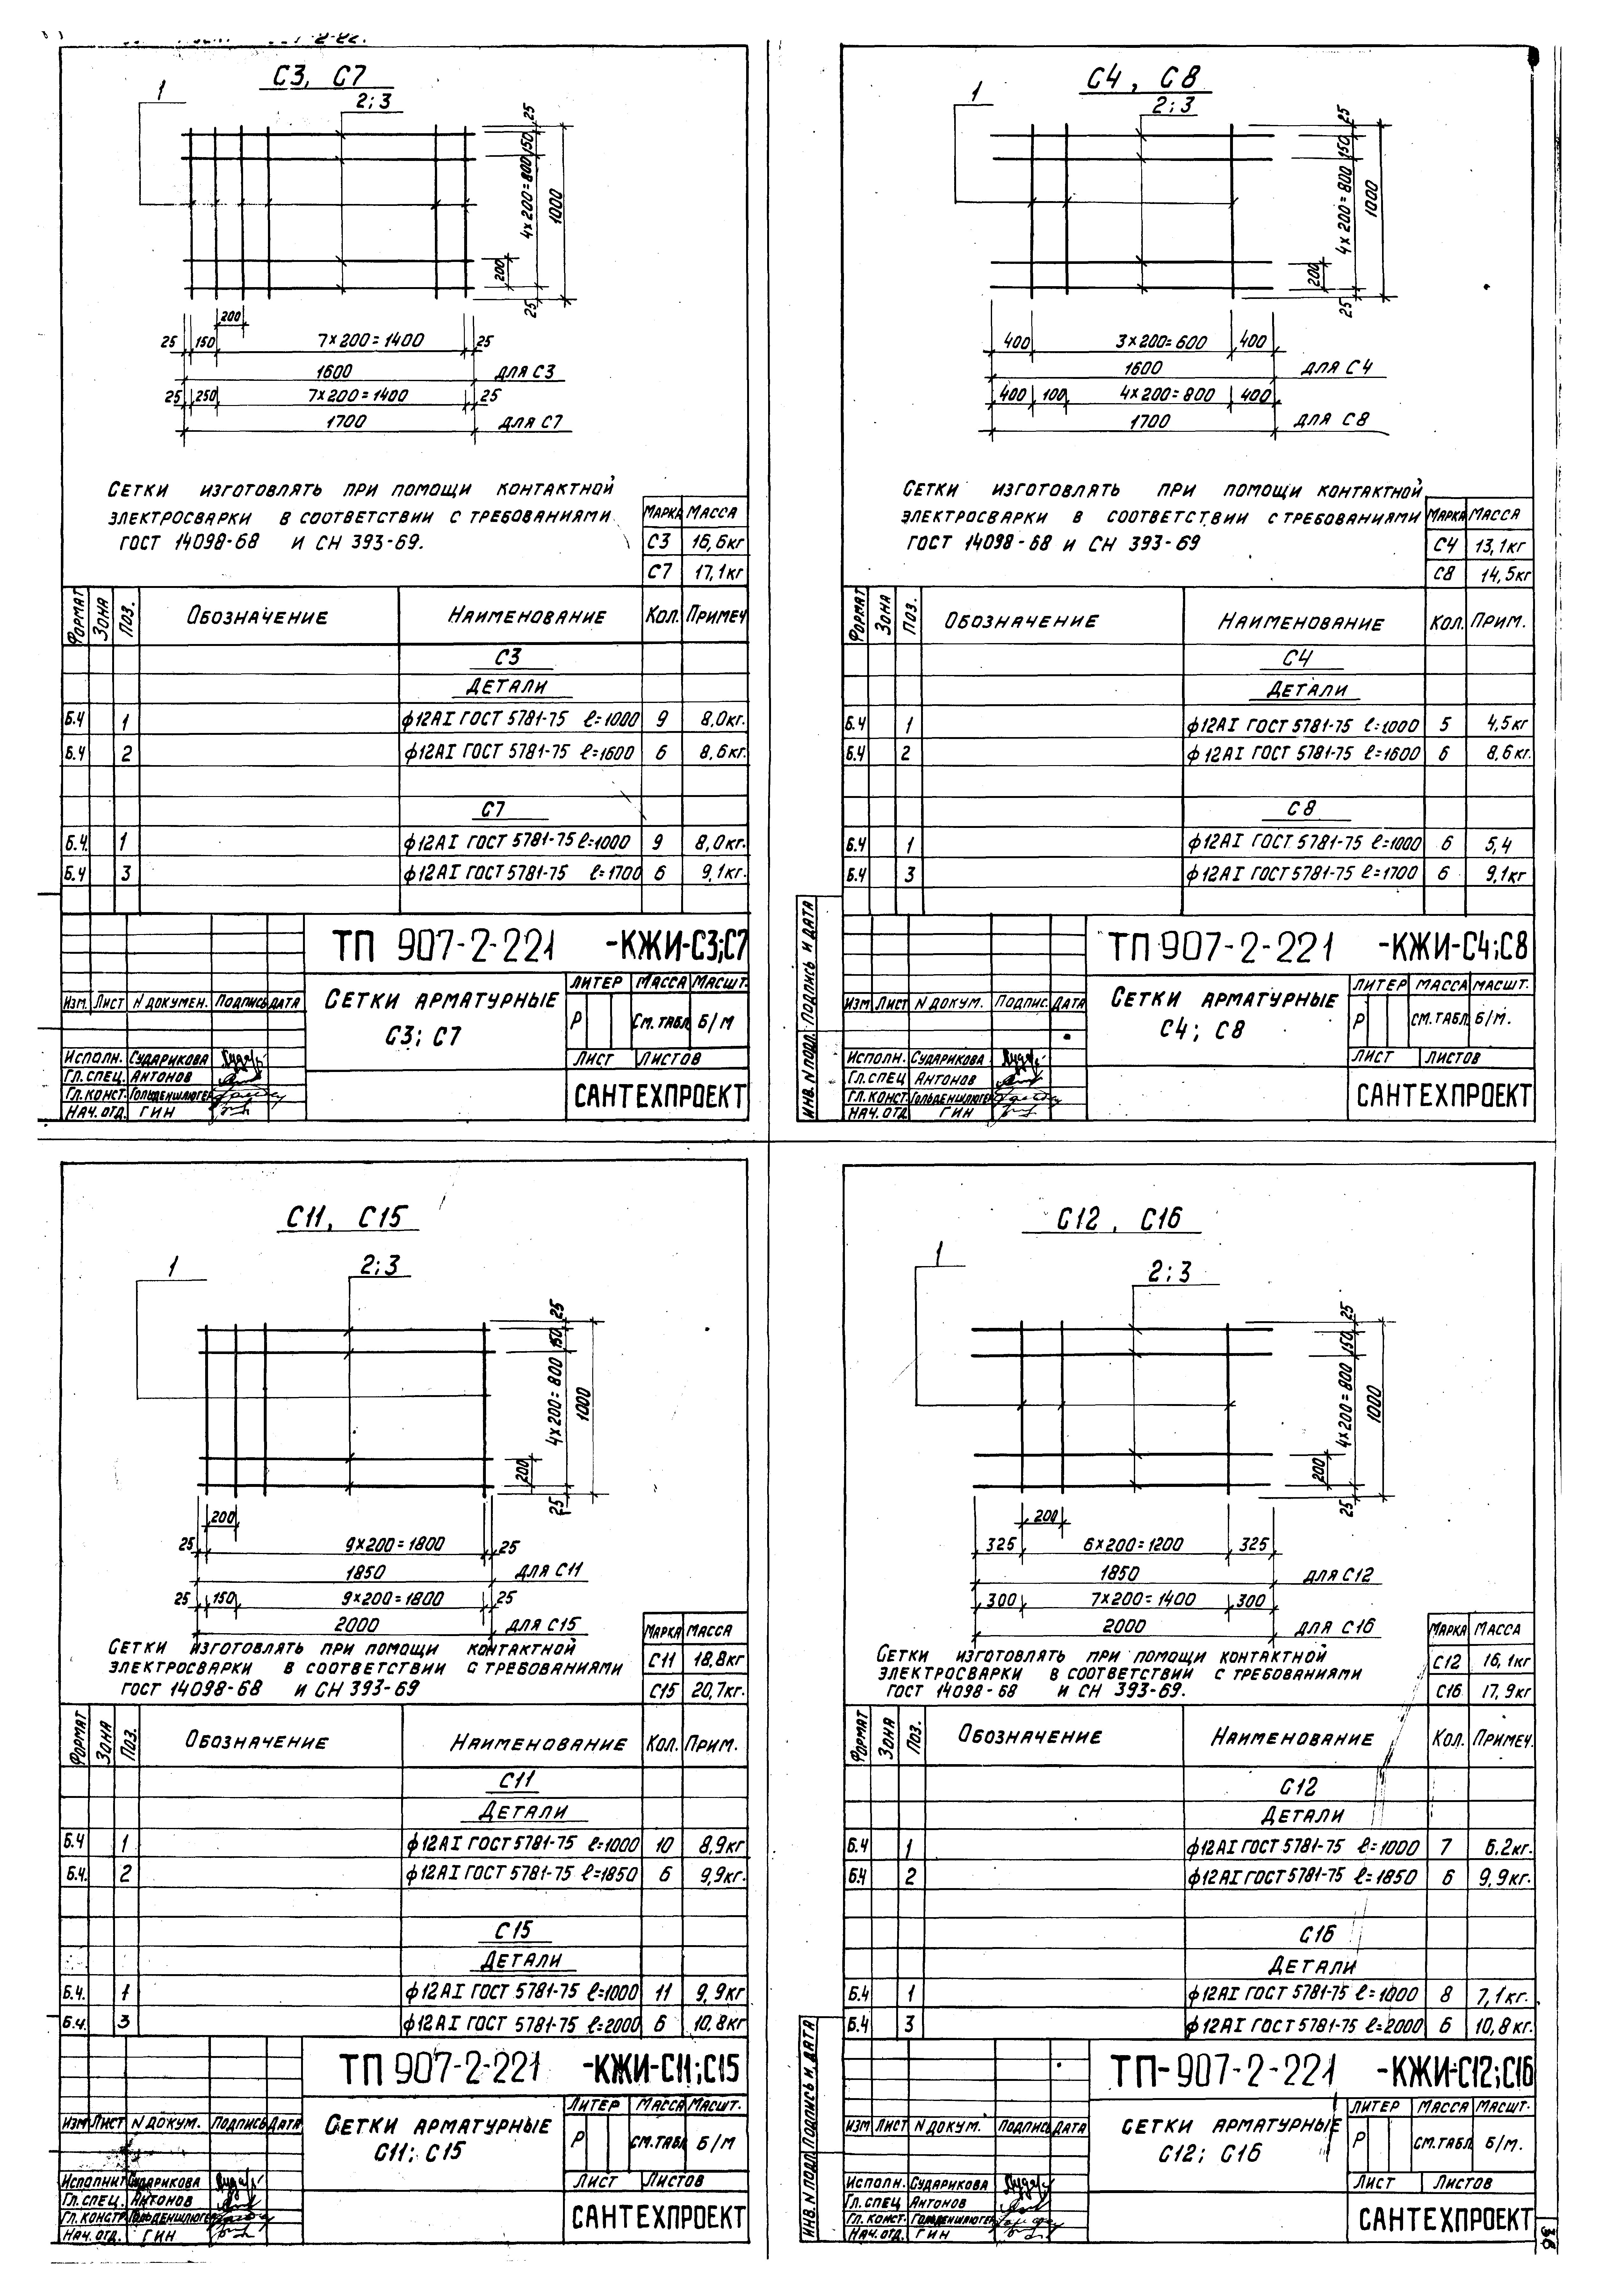 С3, С7
1
2;3
25
150
4×200=800
1000
200
25
200
25 150 7×200=1400 25
1600 для С3
25 250 7×200=1400 25
1700 для С7
Сетки изготовлять при помощи контактной
электросварки в соответствии с требованиями
ГОСТ 14098-68 и СН 393-69.
Марка Масса
С3 16,6кг
С7 17,1кг
Формат Зона Поз. Обозначение Наименование Кол. Примеч
С3
Детали
Б.Ч 1 ф12АI ГОСТ 5781-75 ℓ=1000 9 8,0кг.
Б.Ч 2 ф12АI ГОСТ 5781-75 ℓ=1600 6 8,6кг.
С7
Б.Ч. 1 ф12АI ГОСТ 5781-75 ℓ=1000 9 8,0кг.
Б.Ч 3 ф12АI ГОСТ 5781-75 ℓ=1700 6 9,1кг.
ТП 907-2-221 -КЖИ-С3;С7
Изм. Лист N докумен. Подпись Дата
Сетки арматурные
С3; С7
Литер Масса Масшт.
Р см.табл Б/М
Лист Листов
Исполн. Сударикова
Гл.спец. Антонов
Гл.конст. Гольденшлюгер
Нач.отд. Гин
САНТЕХПРОЕКТ
С4, С8
1
2;3
25
150
4×200=800
1000
200
25
400 3×200=600 400
1600 для С4
400 100 4×200=800 400
1700 для С8
Сетки изготовлять при помощи контактной
электросварки в соответствии с требованиями
ГОСТ 14098-68 и СН 393-69
Марка Масса
С4 13,1кг
С8 14,5кг
Формат Зона Поз. Обозначение Наименование Кол. Прим.
С4
Детали
Б.Ч 1 ф12АI ГОСТ 5781-75 ℓ=1000 5 4,5кг
Б.Ч 2 ф12АI ГОСТ 5781-75 ℓ=1600 6 8,6кг.
С8
Б.Ч 1 ф12АI ГОСТ 5781-75 ℓ=1000 6 5,4
Б.Ч 3 ф12АI ГОСТ 5781-75 ℓ=1700 6 9,1кг
Инв. N подл. Подпись и дата
ТП 907-2-221 -КЖИ-С4;С8
Изм Лист N докум. Подпис. Дата
Сетки арматурные
С4; С8
Литер Масса Масшт.
Р см.табл Б/М.
Лист Листов
Исполн. Сударикова
Гл.спец Антонов
Гл.конст. Гольденшлюгер
Нач.отд. Гин
САНТЕХПРОЕКТ
С11, С15
1
2;3
25
150
4×200=800
1000
200
25
200
25 9×200=1800 25
1850 для С11
25 150 9×200=1800 25
2000 для С15
Сетки изготовлять при помощи контактной
электросварки в соответствии с требованиями
ГОСТ 14098-68 и СН 393-69
Марка Масса
С11 18,8кг
С15 20,7кг.
Формат Зона Поз. Обозначение Наименование Кол. Прим.
С11
Детали
Б.Ч 1 ф12АI ГОСТ 5781-75 ℓ=1000 10 8,9кг
Б.Ч. 2 ф12АI ГОСТ 5781-75 ℓ=1850 6 9,9кг.
С15
Детали
Б.Ч. 1 ф12АI ГОСТ 5781-75 ℓ=1000 11 9,9кг
Б.Ч. 3 ф12АI ГОСТ 5781-75 ℓ=2000 6 10,8кг
ТП 907-2-221 -КЖИ-С11;С15
Изм Лист N докум. Подпись Дата
Сетки арматурные
С11; С15
Литер Масса Масшт.
Р см.табл Б/М
Лист Листов
Исполнит Сударикова
Гл.спец. Антонов
Гл.констр Гольденшлюгер
Нач.отд. Гин
САНТЕХПРОЕКТ
С12, С16
1
2;3
25
150
4×200=800
1000
200
25
200
325 6×200=1200 325
1850 для С12
300 7×200=1400 300
2000 для С16
Сетки изготовлять при помощи контактной
электросварки в соответствии с требованиями
ГОСТ 14098-68 и СН 393-69.
Марка Масса
С12 16,1кг
С16 17,9кг
Формат Зона Поз. Обозначение Наименование Кол. Примеч.
С12
Детали
Б.Ч 1 ф12АI ГОСТ 5781-75 ℓ=1000 7 6.2кг.
Б.Ч 2 ф12АI ГОСТ 5781-75 ℓ=1850 6 9,9кг.
С16
Детали
Б.Ч 1 ф12АI ГОСТ 5781-75 ℓ=1000 8 7,1кг.
Б.Ч 3 ф12АI ГОСТ 5781-75 ℓ=2000 6 10,8кг.
Инв. N подл. Подпись и дата
ТП-907-2-221 -КЖИ-С12;С16
Изм Лист N докум. Подпись Дата
Сетки арматурные
С12; С16
Литер Масса Масшт.
Р см.табл Б/М.
Лист Листов
Исполн. Сударикова
Гл.спец Антонов
Гл.конст. Гольденшлюгер
Нач.отд. Гин
САНТЕХПРОЕКТ